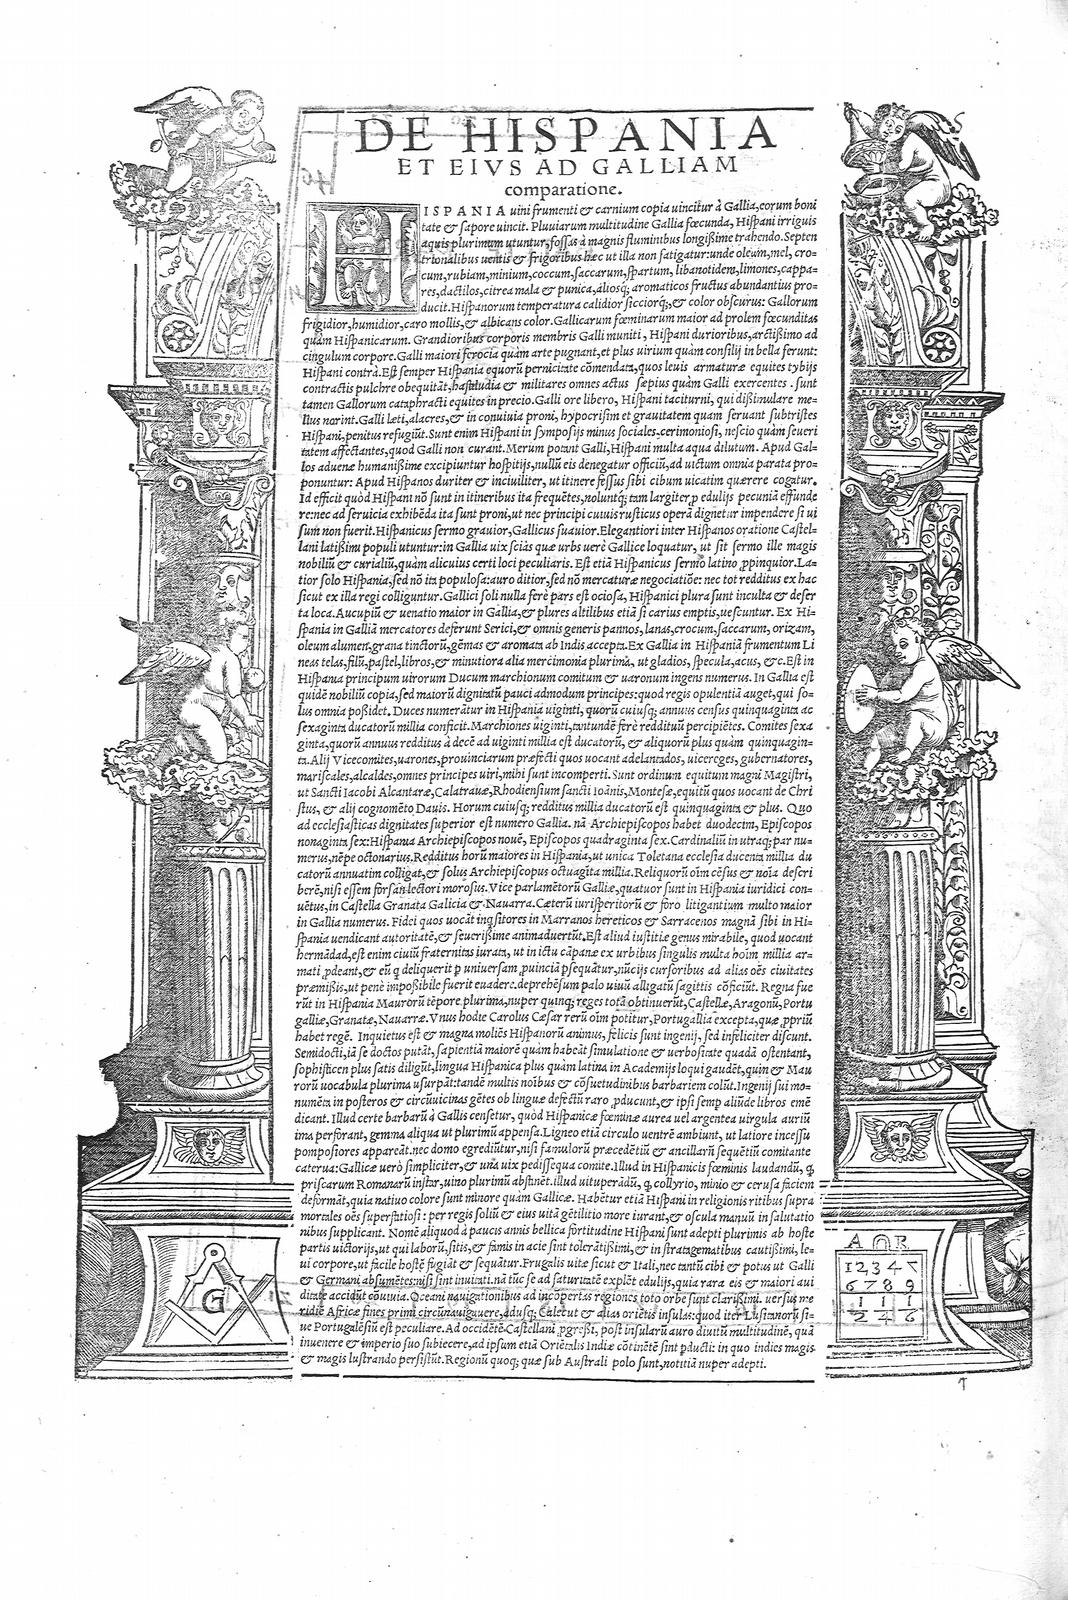 DE HISPANIA
ET EIVS AD GALLIAM
comparatione.
HISPANIA uini frumenti & carnium copia uincitur à Gallia, eorum boni
tate & sapore uincit. Pluuiarum multitudine Gallia fœcunda, Hispani irriguis
aquis plurimum utuntur, fossas à magnis fluminibus longißime trahendo. Septen
trionalibus uentis & frigoribus hæc ut illa non fatigatur: unde oleum, mel, cro=
cum, rubiam, minium, coccum, saccarum, spartum, libanotidem, limones, cappa=
res, dactilos, citrea mala & punica, aliosq; aromaticos fructus abundantius pro=
ducit. Hispanorum temperatura calidior sicciorq;, & color obscurus: Gallorum
frigidior, humidior, caro mollis, & albicans color. Gallicarum fœminarum maior ad prolem fœcunditas
quàm Hispanicarum. Grandioribus corporis membris Galli muniti, Hispani durioribus, arctißimo ad
cingulum corpore. Galli maiori ferocia quàm arte pugnant, et plus uirium quàm consilij in bella ferunt:
Hispani contrà. Est semper Hispania equorũ pernicitate cõmendata, quos leuis armaturæ equites tybijs
contractis pulchre obequitãt, hastiludia & militares omnes actus sæpius quàm Galli exercentes. sunt
tamen Gallorum cataphracti equites in precio. Galli ore libero, Hispani taciturni, qui dißimulare me=
lius norint. Galli læti, alacres, & in conuiuia proni, hypocrisim et grauitatem quam seruant subtristes
Hispani, penitus refugiũt. Sunt enim Hispani in symposijs minus sociales, cerimoniosi, nescio quàm seueri
tatem affectantes, quod Galli non curant. Merum potant Galli, Hispani multa aqua dilutum. Apud Gal=
los aduenæ humanißime excipiuntur hospitijs, nullũ eis denegatur officiũ, ad uictum omnia parata pro=
ponuntur: Apud Hispanos duriter & inciuiliter, ut itinere fessus sibi cibum uicatim quærere cogatur.
Id efficit quòd Hispani nõ sunt in itineribus ita frequẽtes, noluntq; tam largiter p edulijs pecuniã effunde
re: nec ad seruicia exhibẽda ita sunt proni, ut nec principi cuiuis rusticus operã dignetur impendere si ui
sum non fuerit. Hispanicus sermo grauior, Gallicus suauior. Elegantiori inter Hispanos oratione Castel=
lani latißimi populi utuntur: in Gallia uix sciãs quæ urbs uerè Gallice loquatur, ut sit sermo ille magis
nobiliũ & curialiũ, quàm alicuius certi loci peculiaris. Est etiã Hispanicus sermo latino ppinquior. La=
tior solo Hispania, sed nõ ita populosa: auro ditior, sed nõ mercaturæ negociatiõe: nec tot redditus ex hac
sicut ex illa regi colliguntur. Gallici soli nulla ferè pars est ociosa, Hispanici plura sunt inculta & deser
ta loca. Aucupiũ & uenatio maior in Gallia, & plures altilibus etiã si carius emptis, uescuntur. Ex Hi=
spania in Galliã mercatores deferunt Serici, & omnis generis pannos, lanas, crocum, saccarum, orizam,
oleum alumen, grana tinctorũ, gẽmas & aromata ab Indis accepta. Ex Gallia in Hispaniã frumentum Li
neas telas, filũ, pastel, libros, & minutiora alia mercimonia plurima, ut gladios, specula, acus, &c. Est in
Hispania principum uirorum Ducum marchionum comitum & uaronum ingens numerus. In Gallia est
quidẽ nobiliũ copia, sed maiorũ dignitatũ pauci admodum principes: quod regis opulentiã auget, qui so=
lus omnia poßidet. Duces numerãtur in Hispania uiginti, quorũ cuiusq; annuus census quinquaginta ac
sexaginta ducatorũ millia conficit. Marchiones uiginti, tantundẽ ferè reddituũ percipiẽtes. Comites sexa
ginta, quorũ annuus redditus à decẽ ad uiginti millia est ducatorũ, & aliquorũ plus quàm quinquagin=
ta. Alij Vicecomites, uarones, prouinciarum præfecti quos uocant adelantados, uicereges, gubernatores,
mariscales, alcaldes, omnes principes uiri, mihi sunt incomperti. Sunt ordinum equitum magni Magistri,
ut Sancti Iacobi Alcantaræ, Calatrauæ, Rhodiensium sancti Ioãnis, Montesæ, equitũ quos uocant de Chri
stus, & alij cognomẽto Dauis. Horum cuiusq; redditus millia ducatorũ est quinquaginta & plus. Quo
ad ecclesiasticas dignitates superior est numero Gallia. nã Archiepiscopos habet duodecim, Episcopos
nonaginta sex: Hispania Archiepiscopos nouẽ, Episcopos quadraginta sex. Cardinaliũ in utraq; par nu=
merus, nẽpe octonarius. Redditus horũ maiores in Hispania, ut unica Toletana ecclesia ducenta millia du
catorũ annuatim colligat, & solus Archiepiscopus octuagīta millia. Reliquorũ oīm cẽsus & noīa descri
berẽ, nisi essem forsan lectori morosus. Vice parlamẽtorũ Galliæ, quatuor sunt in Hispania iuridici con=
uẽtus, in Castella Granata Galicia & Nauarra. Cæterũ iurisperitorũ & foro litigantium multo maior
in Gallia numerus. Fidei quos uocãt inqsitores in Marranos hereticos & Sarracenos magnã sibi in Hi=
spania uendicant autoritatẽ, & seuerißime animaduertũt. Est aliud iustitiæ genus mirabile, quod uocant
hermãdad, est enim ciuiũ fraternitas iurata, ut in ictu cãpanæ ex urbibus singulis multa hoīm millia ar=
mati pdeant, & eũ q deliquerit p uniuersam puincia psequãtur, nũcijs cursoribus ad alias oẽs ciuitates
præmißis, ut penè impoßibile fuerit euadere. deprehẽsum palo uiuũ alligatũ sagittis cõficiũt. Regna fue
rũt in Hispania Maurorũ tẽpore plurima, nuper quinq; reges totã obtinuerũt, Castellæ, Aragonũ, Portu
galliæ, Granatæ, Nauarræ. Vnus hodie Carolus Cæsar rerũ oīm potitur, Portugallia excepta, quæ ppriũ
habet regẽ. Inquietus est & magna moliẽs Hispanorũ animus, felicis sunt ingenij, sed infeliciter discunt.
Semidocti, iã se doctos putãt, sapientiã maiorẽ quàm habeãt simulatione & uerbositate quadã ostentant,
sophisticen plus satis diligũt, lingua Hispanica plus quàm latina in Academijs loqui gaudẽt, quin & Mau
rorũ uocabula plurima usurpãt: tandẽ multis noībus & cõsuetudinibus barbariem colũt. Ingenij sui mo=
numẽta in posteros & circũuicinas gẽtes ob linguæ defectũ raro pducunt, & ipsi semp aliũde libros emẽ
dicant. Illud certe barbarũ à Gallis censetur, quòd Hispanicæ fœminæ aurea uel argentea uirgula auriũ
ima perforant, gemma aliqua ut plurimũ appensa. Ligneo etiã circulo uentrẽ ambiunt, ut latiore incessu
pomposiores appareãt. nec domo egrediũtur, nisi famulorũ præcedẽtiũ & ancillarũ sequẽtiũ comitante
caterua: Gallicæ uerò simpliciter, & una uix pedissequa comite. Illud in Hispanicis fœminis laudandũ, q
priscarum Romanarũ instar, uino plurimũ abstinẽt. illud uituperãdũ, q collyrio, minio & cerusa faciem
deformãt, quia natiuo colore sunt minore quàm Gallicæ. Habẽtur etiã Hispani in religionis ritibus supra
mortales oẽs superstitiosi: per regis soliũ & eius uitã gẽtilitio more iurant, & oscula manuũ in salutatio
nibus supplicant. Nomẽ aliquod à paucis annis bellica fortitudine Hispani sunt adepti plurimis ab hoste
partis uictorijs, ut qui laborũ, sitis, & famis in acie sint tolerãtißimi, & in stratagematibus cautißimi, le=
ui corpore, ut facile hostẽ fugiãt & sequãtur. Frugalis uitæ sicut & Itali, nec tantũ cibi & potus ut Galli
& Germani absumẽtes: nisi sint inuitati. nã tũc se ad saturitatẽ explẽt edulijs, quia rara eis & maiori aui
ditate accidũt cõuiuia. Oceani nauigationibus ad incopertas regiones toto orbe sunt clarißimi. uersus me
ridiẽ Africæ fines primi circũnauiguere, adusq; Calecut & alias oriẽtis insulas: quod iter Lusitanorũ si=
ue Portugalẽsiũ est peculiare. Ad occidẽtẽ Castellani pgreßi, post insularũ auro diuitũ multitudinẽ, quã
inuenere & imperio suo subiecere, ad ipsum etiã Oriẽtalis Indiæ cõtinẽtẽ sint pducti: in quo indies magis
& magis lustrando persistũt. Regionũ quoq; quæ sub Australi polo sunt, notitiã nuper adepti.
G
1 2 3 4 5
6 7 8 9